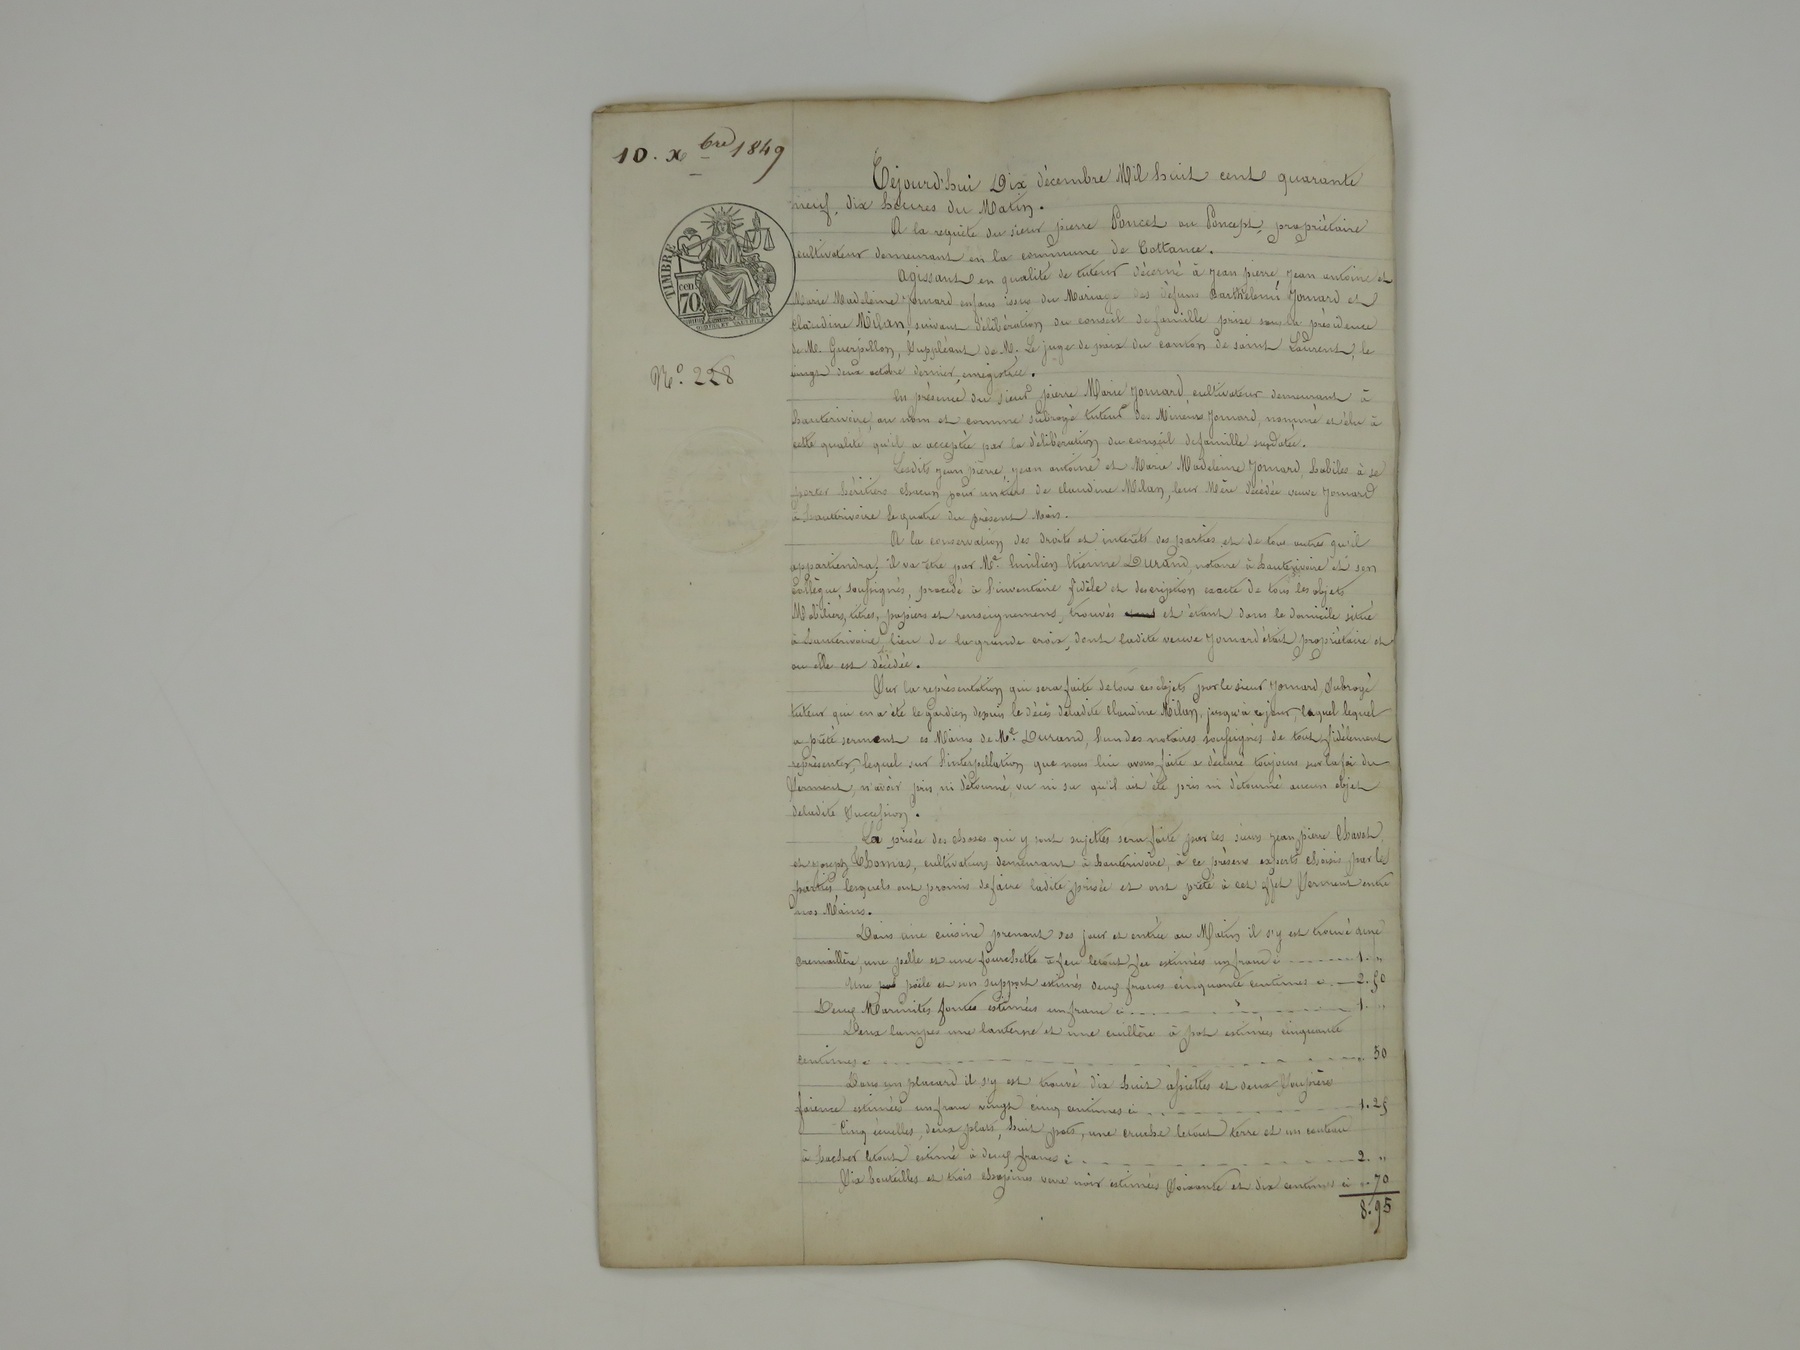 10. xbre 1849
TIMBRE
cen.
70.
No. 228
Cejourd'hui Dix décembre Mil huit cent quarante
neuf, dix heures du Matin.
A la requête du sieur pierre Poncet ou Poncept, propriétaire
cultivateur demeurant en la commune de Cottance.
Agissant en qualité de tuteur décerné à Jean pierre, Jean antoine et
Marie Madeleine Jomard enfans issus du Mariage des défuns Barthélemi Jomard et
Claudine Milan, suivant délibération du conseil de famille prise sous la présidence
de M. Guerpillon, Suppléant de M. Le juge de paix du canton de saint Laurent, le
vingt deux octobre dernier, enregistrée.
En présence du sieur pierre Marie Jomard, cultivateur demeurant à
hauterivoire, au nom et comme subrogé tuteur des Mineurs Jomard, nommé et élu à
cette qualité qu'il a acceptée par la délibération du conseil de famille susdatée.
Lesdits Jean pierre, Jean antoine et Marie Madeleine Jomard, habiles à se
porter héritiers chacun pour un tiers de Claudine Milan, leur Mère décédée veuve Jomard
à hauterivoire le quatre du présent Mois.
A la conservation des droits et intérêts des parties et de tous autres qu'il
appartiendra, il va être par Me. Emilien Etienne Durand, notaire à hauterivoire et son
Collègue, soussignés, procédé à l'inventaire fidèle et description exacte de tous les objets
Mobiliers, titres, papiers et renseignemens, trouvés et étant dans le domicile situé
à hauterivoire, lieu de la grande croix, dont ladite veuve Jomard était propriétaire et
ou elle est décédée.
Sur la représentation qui sera faite de tous ces objets par le sieur Jomard, Subrogé
tuteur qui en a été le gardien depuis le décès de ladite Claudine Milan, jusqu'à ce jour, laquel lequel
a prêté serment es Mains de Me. Durand, l'un des notaires soussignés de tout fidèlement
représenter, lequel sur l'interpellation que nous lui avons faite a déclaré toujours sur la foi du
Serment, n'avoir pris ni détourné, vu ni su qu'il ait été pris ni détourné aucun objet
de ladite Succession.
La prisée des choses qui y sont sujettes sera faite par les sieurs Jean pierre Chavat
et Joseph Thomas, cultivateurs demeurant à hauterivoire, à ce présens experts choisis par les
parties, lesquels ont promis de faire ladite prisée et ont prêté à cet effet Serment entre
nos Mains.
Dans une cuisine prenant ses jour et entrée au Matin il s'y est trouvé une
cremaillère, une pelle et une fourchette à feu letout fer estimées un franc ci 1. "
Une poële et son support estimés deux francs cinquante centimes ci 2. 50
Deux Marmites fontes estimées un franc ci 1. "
Deux lampes une lanterne et une cuillère à pot estimées cinquante
centimes ci " 50
Dans un placard il s'y est trouvé dix huit assiettes et deux Soupières
faïence estimées un franc vingt cinq centimes ci 1. 25
Cinq écuelles, deux plats, huit pots, une cruche letout terre et un couteau
à hacher letout estimé à deux francs ci 2. "
Six bouteilles et trois chopines verre noir estimées Soixante et dix centimes ci " 70
8. 95